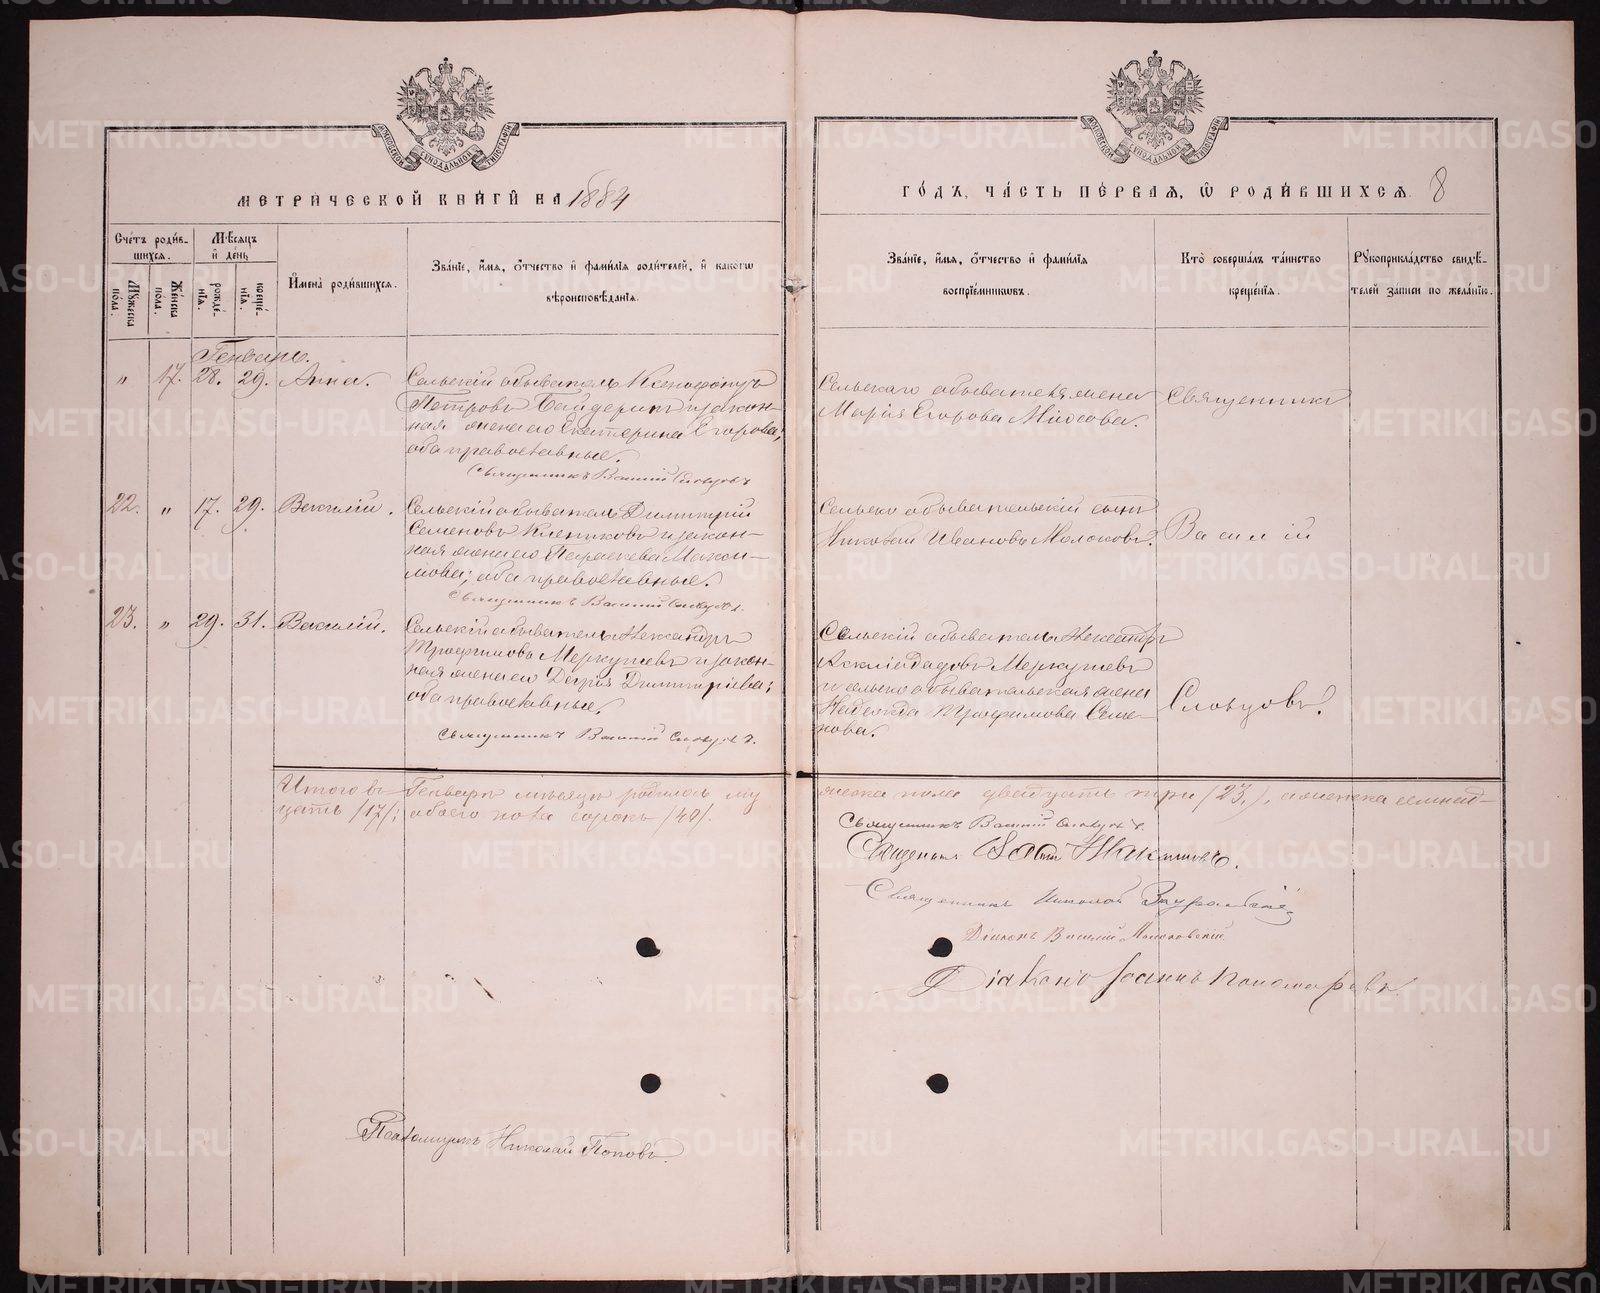 МЕТРИЧЕСКОЙ КНИГИ НА 1884
ГОДЪ, ЧАСТЬ ПЕРВАЯ, Ѡ РОДИВШИХСЯ. 8
Счетъ родив-
шихся.
Мужеска пола.
Женска пола.
Мѣсяцъ и день
рожде-
нія.
креще-
нія.
Имена родившихся.
Званіе, имя, отчество и фамилія родителей, и какогѡ
вѣроисповѣданія.
Званіе, имя, отчество и фамилія
воспріемникѡвъ.
Кто совершалъ таинство
крещенія.
Рукоприкладство свидѣ-
телей записи по желанію.
Генварь.
" 17. 28. 29. Анна.
Сельскій обыватель Ксенофонтъ
Петровъ Байдеринъ и закон-
ная жена его Екатерина Егорова;
оба православные.
Священникъ Василий Словцовъ
Сельскаго обывателя жена
Марія Егорова
Священникъ
22. " 17. 29. Василій.
Сельскій обыватель Димитрій
Семеновъ Клепиковъ и закон-
ная жена его Параскева Макси-
мова; оба православные.
Священникъ Василий Словцовъ.
Сельско обывательскій сынъ
Николай Ивановъ Молоковъ.
Василій
23. " 29. 31. Василій.
Сельскій обыватель Александръ
Трофимовъ Меркушевъ и закон-
ная жена его Дарія Димитріева;
оба православные.
Священникъ Василий Словцовъ.
Сельскій обыватель Александръ
Асклипіадовъ Меркушевъ
и сельско обывательская жена
Надежда Трофимова Семе-
нова.
Словцовъ.
Итого въ Генварѣ мѣсяцѣ родилось му
жеска пола двадцать три (23.), а женска семнад-
цать (17); обоего пола сорокъ (40).
Священникъ Василий Словцовъ.
Священникъ
Священникъ Николай Зауральскій
Діаконъ Василій Молоковскій.
Діаконъ Іоаннъ Пономаревъ
Псаломщикъ Николай Поповъ.
METRIKI.GASO-URAL.RU